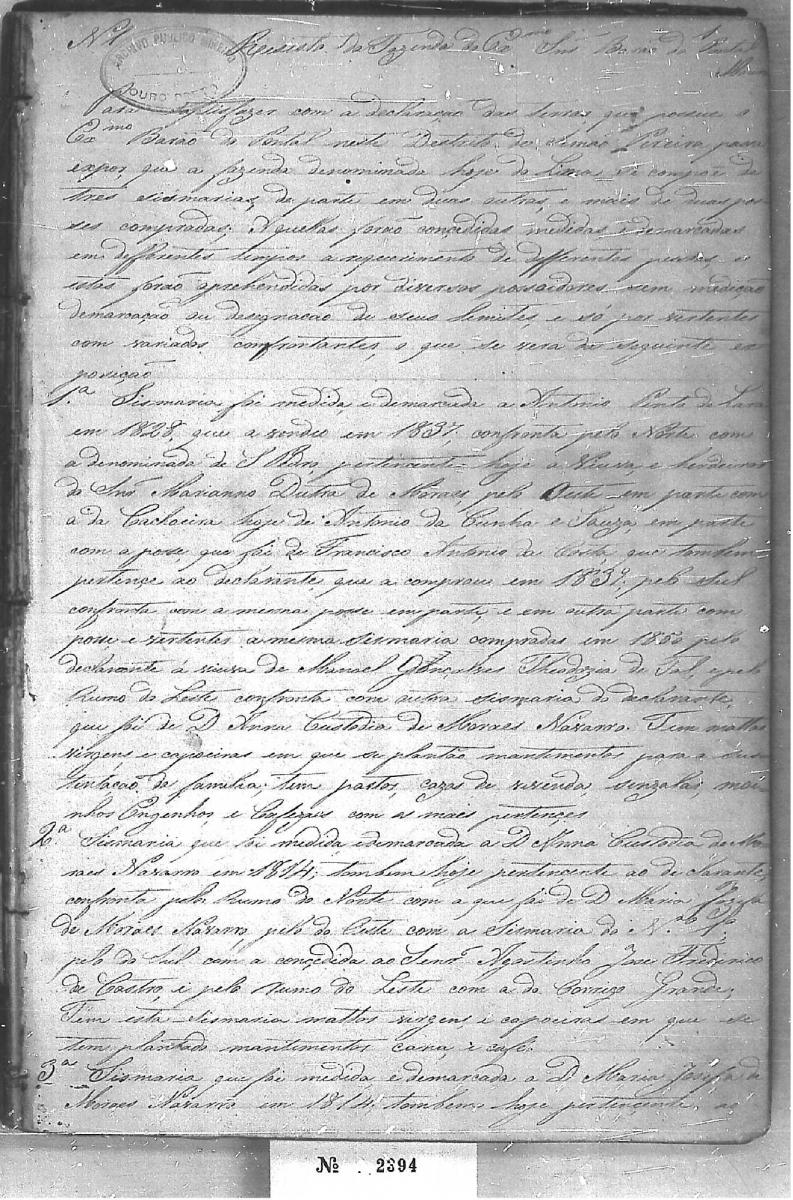 Nº 1 Registo da Fazenda do Exmo Snr Barão do Pontal
ARCHIVO PUBLICO MINEIRO
OURO PRETO
Para satisfazer com a declaração das terras que possue o
Exmo Barão do Pontal neste Destricto de Simão Pereira, passa
expor que a fazenda denominada hoje da Lima se compõe de
tres sismarias, da parte em duas outras, e mais de duas pos-
ses compradas; Aquellas forão concedidas medidas e demarcadas
em differentes tempos a requerimento de differentes pessoas, e
estas forão aprehendidas por diversos possuidores sem medição
demarcação ou designacão de seus limites, e só por vertentes
com variados confrontantes, o que se vera da seguinte ex
posição
1.ª Sismaria foi medida, e demarcada a Antonio Pinto de Lara
em 1828, que a vendeo em 1837, confronta pelo Norte com
a denominada de S Pedro, pertencente hoje a Viuva, e herdeiros
do Snr Marianno Dutra de Moraes, pelo Oeste em parte com
a da Cachoeira hoje de Antonio da Cunha e Souza, em parte
com a posse, que foi de Francisco Antonio da Costa, que tambem
pertençe ao declarante, que a comprou em 1839, pelo Sul
confronta com a mesma posse em parte, e em outra parte com
posse, e vertentes a mesma sismaria compradas em 1850 pelo
declarante á viuva de Manoel Gonçalves Theodozia de Tal, e pelo
Rumo do Leste confronta com outra sismaria do declarante,
que foi de D Anna Custodia de Moraes Navarro. Tem mattos
virgens, e capoeiras em que se plantão mantimentos para a sus
tentacão da familia, tem pastos, cazas de vivenda, senzalas, moi
nhos Engenhos, e Cafezaes com os mais pertençes
2.ª Sismaria que foi medida e demarcada a D Anna Custodia de Mo
raes Navarro em 1814; tambem hoje pertencente ao declarante,
confronta pelo Rumo do Norte com a que foi de D Maria Jozefa
de Moraes Navarro, pelo do Oeste com a Sismaria do N.º 1º
pelo do Sul com a conçedida ao Senr Agostinho Jose Frederico
de Castro, e pelo rumo do Leste com a do Corrego Grande,
Tem esta sismaria mattos virgens e capoeiras em que se
tem plantado mantimentos cana, e café.
3ª Sismaria que foi medida e demarcada a D Maria Josefa de
Moraes Navarro em 1814, tambem hoje pertencente, ao
Nº 2394